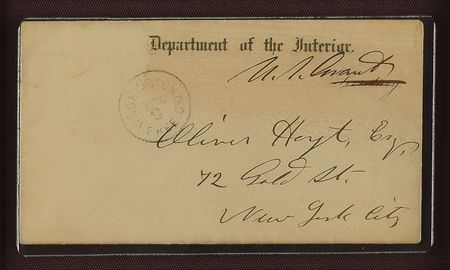 Department of the Interior.
U. S. Grant
WASHINGTON D.C.
FREE
Oliver Hoyt, Esq,
72 Gold St.
New York City